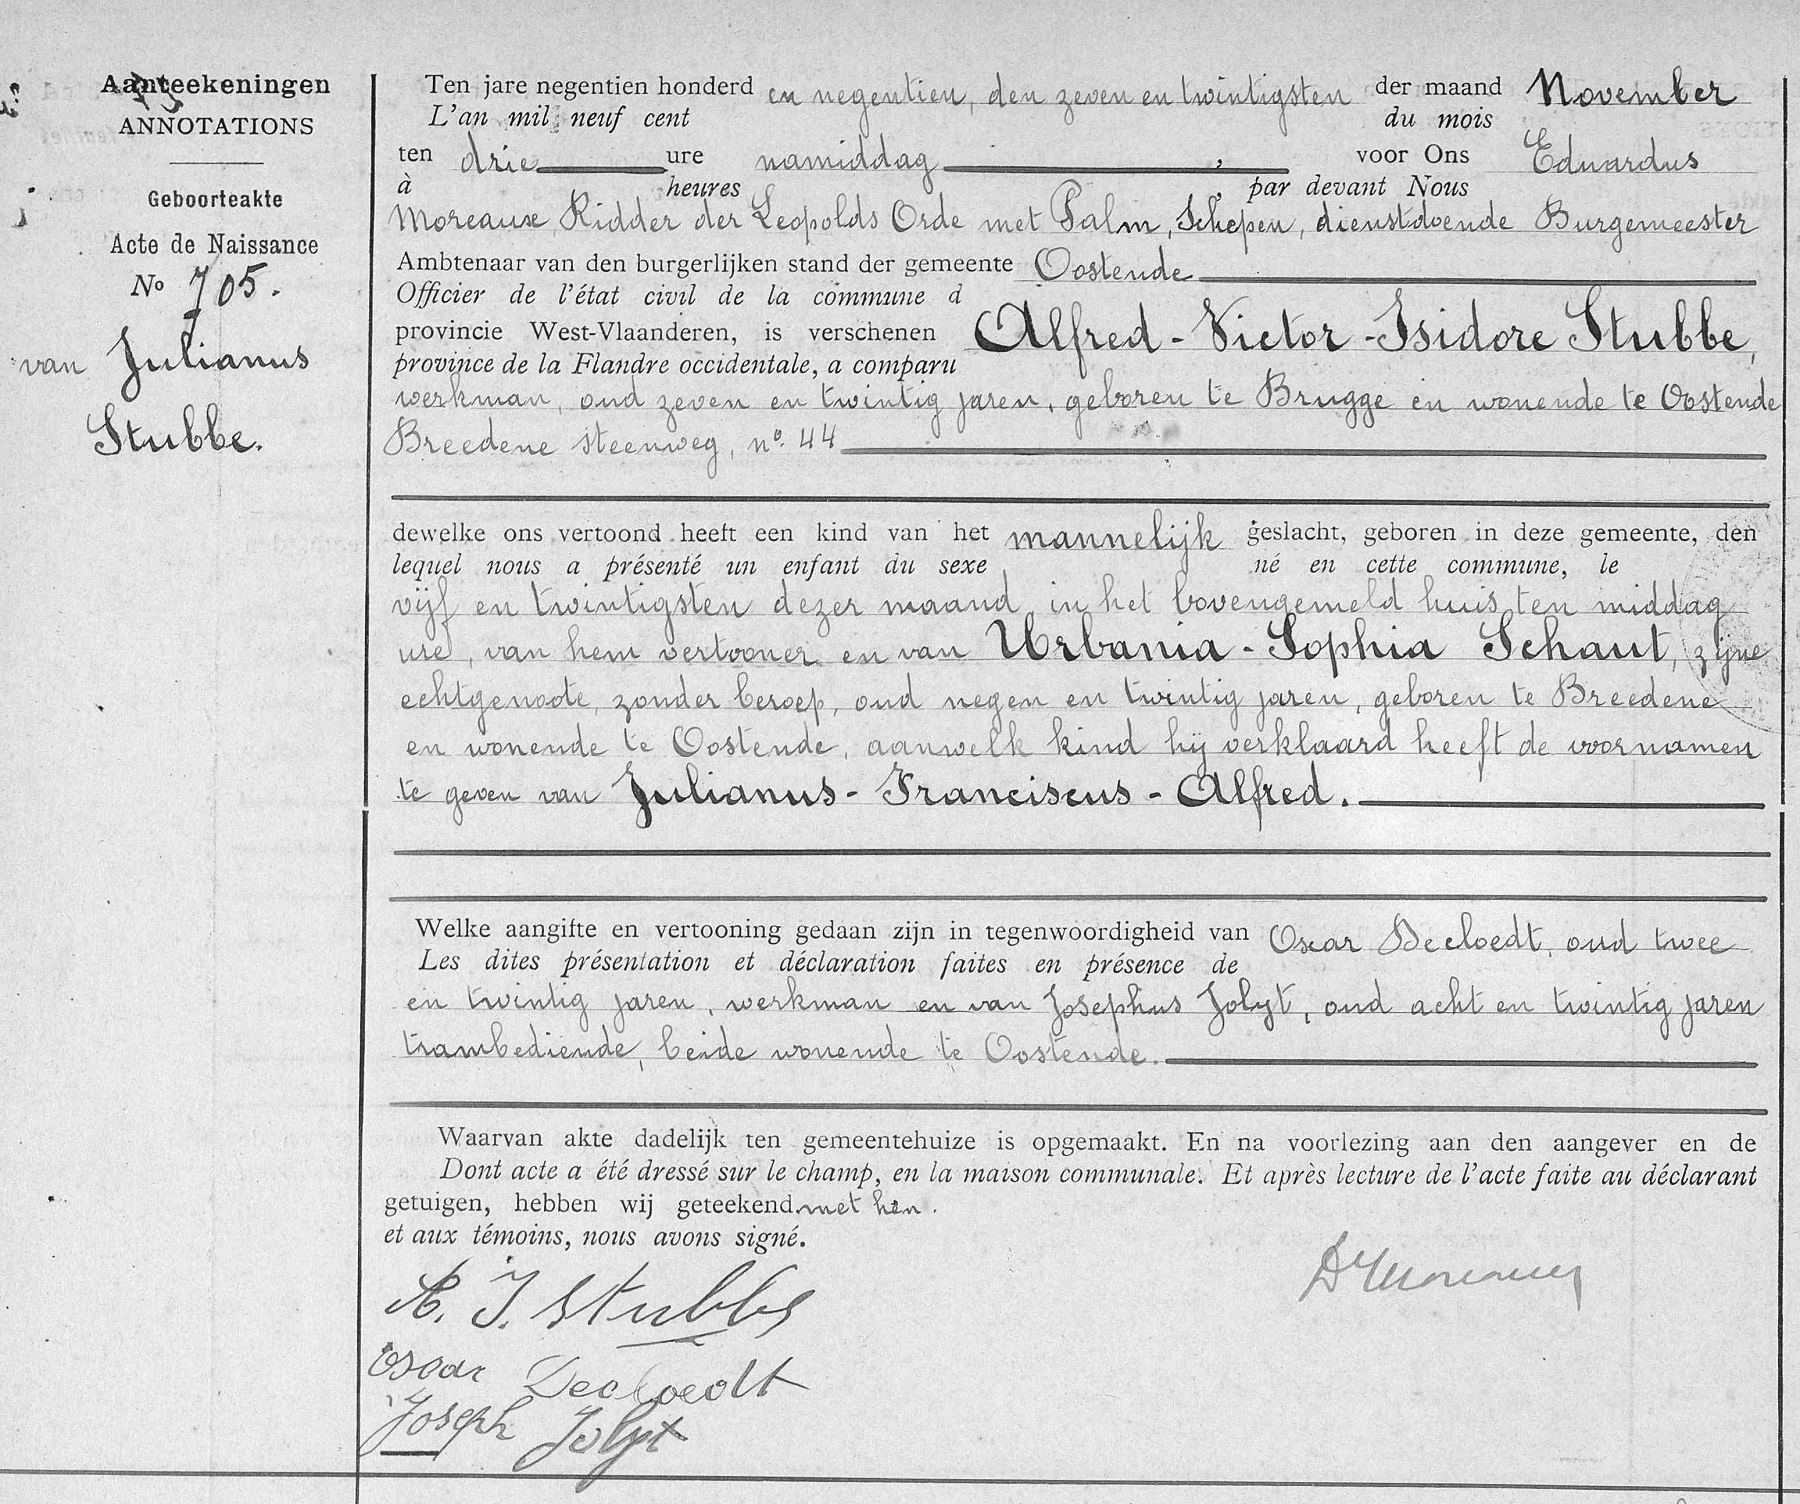 Aanteekeningen
ANNOTATIONS
Geboorteakte
Acte de Naissance
No 705.
van Julianus
Stubbe.
Ten jare negentien honderd en negentien, den zeven en twintigsten der maand November
L'an mil neuf cent du mois
ten drie ure namiddag, voor Ons Eduardus
à heures, par devant Nous
Moreaux, Ridder der Leopolds Orde met Palm, Schepen, dienstdoende Burgemeester
Ambtenaar van den burgerlijken stand der gemeente Oostende
Officier de l'état civil de la commune d
provincie West-Vlaanderen, is verschenen Alfred-Victor-Isidore Stubbe,
province de la Flandre occidentale, a comparu
werkman, oud zeven en twintig jaren, geboren te Brugge en wonende te Oostende
Breedene steenweg, no. 44
dewelke ons vertoond heeft een kind van het mannelijk geslacht, geboren in deze gemeente, den
lequel nous a présenté un enfant du sexe né en cette commune, le
vijf en twintigsten dezer maand, in het bovengemeld huis ten middag
ure, van hem vertooner en van Urbania-Sophia Schaut, zijne
echtgenoote, zonder beroep, oud negen en twintig jaren, geboren te Breedene
en wonende te Oostende, aanwelk kind hij verklaard heeft de voornamen
te geven van Julianus-Franciscus-Alfred.
Welke aangifte en vertooning gedaan zijn in tegenwoordigheid van Oscar Decloedt, oud twee
Les dites présentation et déclaration faites en présence de
en twintig jaren, werkman en van Josephus Jolyt, oud acht en twintig jaren
trambediende, beide wonende te Oostende.
Waarvan akte dadelijk ten gemeentehuize is opgemaakt. En na voorlezing aan den aangever en de
Dont acte a été dressé sur le champ, en la maison communale. Et après lecture de l'acte faite au déclarant
getuigen, hebben wij geteekend met hen.
et aux témoins, nous avons signé.
A. J. Stubbe
Oscar Decloedt
Joseph Jolyt